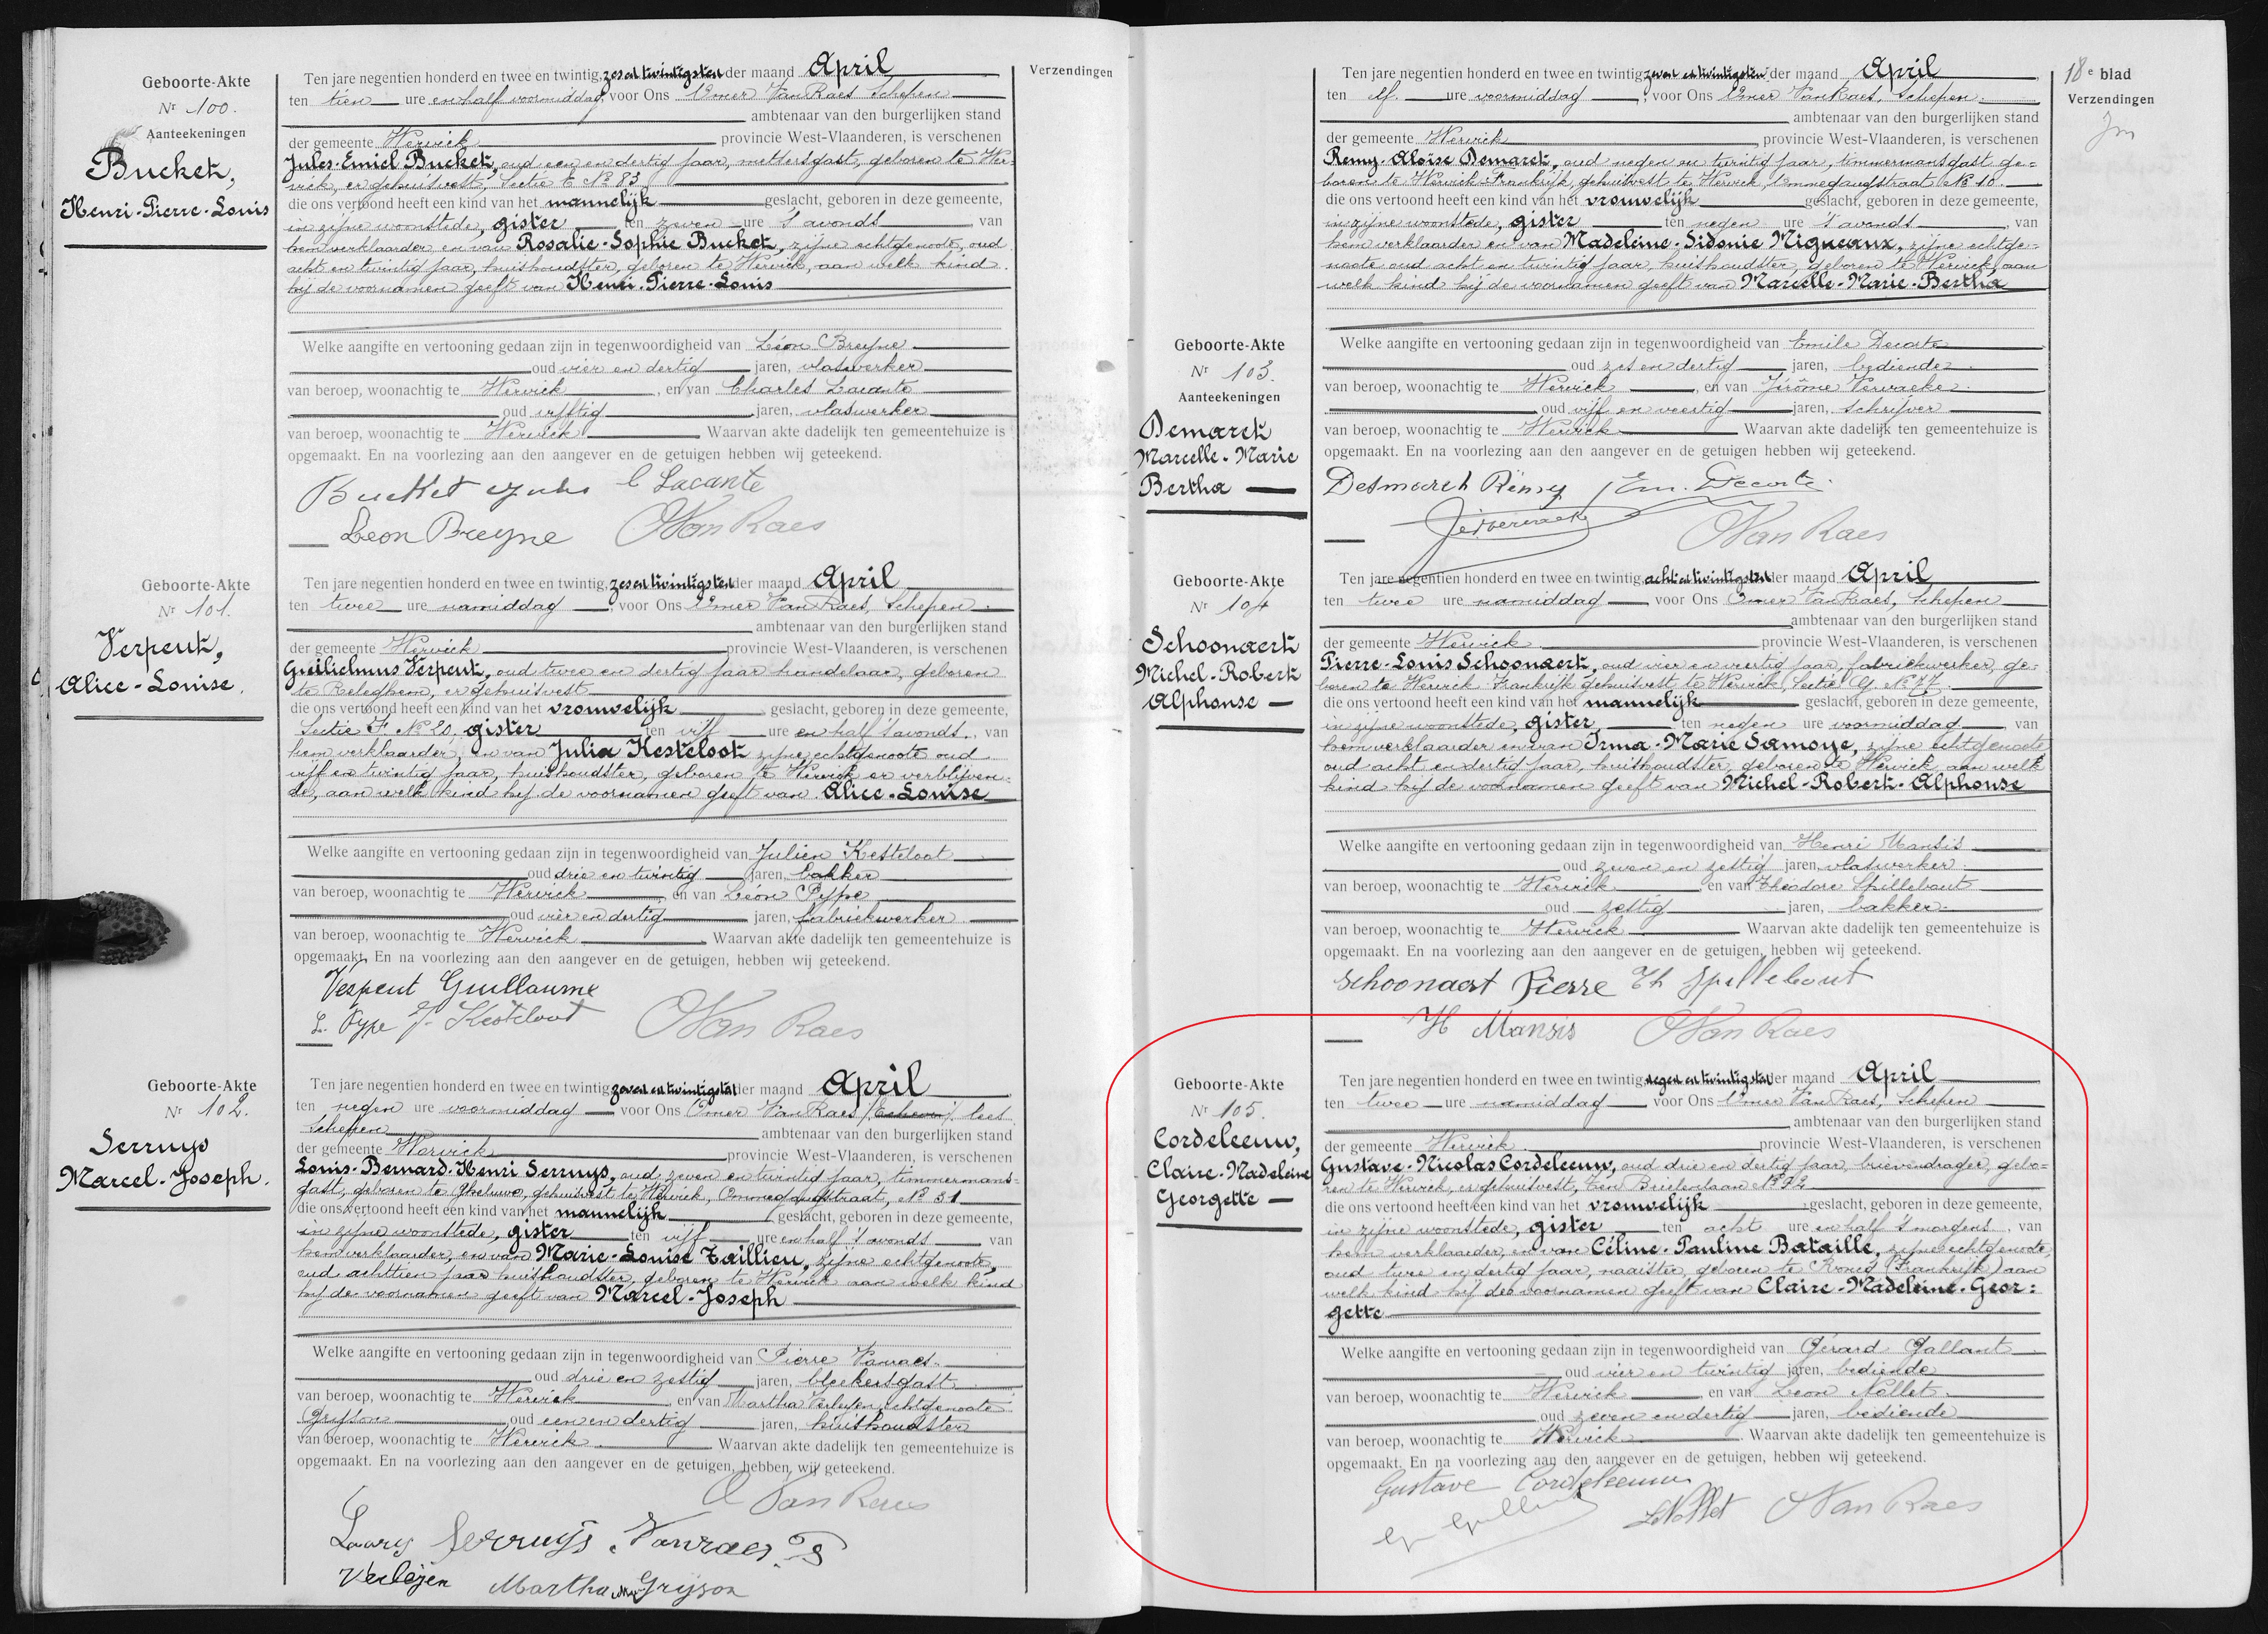 Geboorte-Akte
Nr 100.
Aanteekeningen
Bucket,
Henri-Pierre-Louis
Ten jare negentien honderd en twee en twintig, zes en twintigsten der maand April
ten tien ure en half voormiddag, voor Ons Omer Van Raes Schepen
ambtenaar van den burgerlijken stand
der gemeente Wervick provincie West-Vlaanderen, is verschenen
Jules-Emiel Bucket, oud een en dertig jaar, mettersgast, geboren te Wer-
vick, er gehuisvest, Sectie E No 83
die ons vertoond heeft een kind van het mannelijk geslacht, geboren in deze gemeente,
in zijne woonstede, gister ten zeven ure 's avonds van
hem verklaarder en van Rosalie-Sophie Bucket, zijne echtgenoote, oud
acht en twintig jaar, huishoudster, geboren te Wervick, aan welk kind
hij de voornamen geeft van Henri-Pierre-Louis
Welke aangifte en vertooning gedaan zijn in tegenwoordigheid van Léon Breyne
oud vier en dertig jaren, vlaswerker
van beroep, woonachtig te Wervick, en van Charles Lacante
oud vijftig jaren, vlaswerker
van beroep, woonachtig te Wervick Waarvan akte dadelijk ten gemeentehuize is
opgemaakt. En na voorlezing aan den aangever en de getuigen hebben wij geteekend.
Bucket Jules C Lacante
Leon Breyne O Van Raes
Verzendingen
Geboorte-Akte
Nr 101.
Verpeut,
Alice-Louise.
Ten jare negentien honderd en twee en twintig, zes en twintigsten der maand April
ten twee ure namiddag, voor Ons Omer Van Raes, Schepen
ambtenaar van den burgerlijken stand
der gemeente Wervick provincie West-Vlaanderen, is verschenen
Guilielmus Verpeut, oud twee en dertig jaar handelaar, geboren
te Beleghem, er gehuisvest
die ons vertoond heeft een kind van het vrouwelijk geslacht, geboren in deze gemeente,
Sectie F. No 20, gister ten vijf ure en half 's avonds, van
hem verklaarder, en van Julia Kesteloot zijne echtgenoote oud
vijf en twintig jaar, huishoudster, geboren te Wervick er verblijven-
de, aan welk kind hij de voornamen geeft van Alice-Louise
Welke aangifte en vertooning gedaan zijn in tegenwoordigheid van Julien Kesteloot
oud drie en twintig jaren, bakker
van beroep, woonachtig te Wervick en van Léon Pype
oud vier en dertig jaren, fabriekwerker
van beroep, woonachtig te Wervick Waarvan akte dadelijk ten gemeentehuize is
opgemaakt, En na voorlezing aan den aangever en de getuigen, hebben wij geteekend.
Verpeut Guillaume
L. Pype J. Kesteloot O Van Raes
Geboorte-Akte
Nr 102.
Serruys
Marcel-Joseph.
Ten jare negentien honderd en twee en twintig zeven en twintigsten der maand April
ten negen ure voormiddag voor Ons Omer Van Raes lees
Schepen ambtenaar van den burgerlijken stand
der gemeente Wervick provincie West-Vlaanderen, is verschenen
Louis-Bernard-Henri Serruys, oud zeven en twintig jaar, timmermans-
gast, geboren te Gheluwe, gehuisvest te Wervick, Ommegangstraat, No 31
die ons vertoond heeft een kind van het mannelijk geslacht, geboren in deze gemeente,
in zijne woonstede, gister ten vijf ure en half 's avonds van
hem verklaarder, en van Marie-Louise Taillieu, zijne echtgenoote,
oud achttien jaar huishoudster, geboren te Wervick aan welk kind
hij de voornamen geeft van Marcel-Joseph
Welke aangifte en vertooning gedaan zijn in tegenwoordigheid van Pierre Vanraes
oud drie en zestig jaren, bleekersgast
van beroep, woonachtig te Wervick, en van Martha Verleyen echtgenoote
Gryson oud een en dertig jaren, huishoudster
van beroep, woonachtig te Wervick Waarvan akte dadelijk ten gemeentehuize is
opgemaakt. En na voorlezing aan den aangever en de getuigen, hebben wij geteekend.
O Van Raes
Serruys Vanraes P
Verleyen Martha Gryson
Ten jare negentien honderd en twee en twintig zeven en twintigsten der maand April
ten elf ure voormiddag, voor Ons Omer Van Raes, Schepen
ambtenaar van den burgerlijken stand
der gemeente Wervick provincie West-Vlaanderen, is verschenen
Remy-Aloïse Demaret, oud negen en twintig jaar, timmermansgast ge-
boren te Wervick-Frankrijk, gehuisvest te Wervick, Ommegangstraat No 10.
die ons vertoond heeft een kind van het vrouwelijk geslacht, geboren in deze gemeente,
in zijne woonstede, gister ten negen ure 's avonds, van
hem verklaarder en van Madeleine-Sidonie Migneaux, zijne echtge-
noote oud acht en twintig jaar, huishoudster, geboren te Wervick, aan
welk kind hij de voornamen geeft van Marcelle-Marie-Bertha
18e blad
Verzendingen
Geboorte-Akte
Nr 103.
Aanteekeningen
Demaret
Marcelle-Marie
Bertha
Welke aangifte en vertooning gedaan zijn in tegenwoordigheid van Emile Decorte
oud zes en dertig jaren, bediende
van beroep, woonachtig te Wervick, en van Jérôme Vervaeke
oud vijf en veertig jaren, schrijver
van beroep, woonachtig te Wervick Waarvan akte dadelijk ten gemeentehuize is
opgemaakt. En na voorlezing aan den aangever en de getuigen hebben wij geteekend.
Desmaret Rémy Em. Decorte
O Van Raes
Geboorte-Akte
Nr 104
Schoonaert
Michel-Robert
Alphonse
Ten jare negentien honderd en twee en twintig acht en twintigsten der maand April
ten twee ure namiddag voor Ons Omer Van Raes, Schepen
ambtenaar van den burgerlijken stand
der gemeente Wervick provincie West-Vlaanderen, is verschenen
Pierre-Louis Schoonaert, oud vier en veertig jaar, fabriekwerker, ge-
boren te Wervick Frankrijk gehuisvest te Wervick, Sectie G No 77.
die ons vertoond heeft een kind van het mannelijk geslacht, geboren in deze gemeente,
in zijne woonstede, gister ten negen ure voormiddag, van
hem verklaarder en van Irma-Marie Samoye, zijne echtgenoote
oud acht en dertig jaar, huishoudster, geboren te Wervick, aan welk
kind hij de voornamen geeft van Michel-Robert-Alphonse
Welke aangifte en vertooning gedaan zijn in tegenwoordigheid van Henri Mansis
oud zeven en zestig jaren, vlaswerker
van beroep, woonachtig te Wervick en van Théodore Spillebout
oud zestig jaren, bakker
van beroep, woonachtig te Wervick Waarvan akte dadelijk ten gemeentehuize is
opgemaakt. En na voorlezing aan den aangever en de getuigen, hebben wij geteekend.
Schoonaert Pierre Th Spillebout
H Mansis O Van Raes
Geboorte-Akte
Nr 105.
Cordeleeuw,
Claire-Madeleine
Georgette
Ten jare negentien honderd en twee en twintig negen en twintigsten der maand April
ten twee ure namiddag voor Ons Omer Van Raes, Schepen
ambtenaar van den burgerlijken stand
der gemeente Wervick provincie West-Vlaanderen, is verschenen
Gustave-Nicolas Cordeleeuw, oud drie en dertig jaar, brievendrager, gebo-
ren te Wervick, er gehuisvest, Ten Brielenlaan No 92
die ons vertoond heeft een kind van het vrouwelijk geslacht, geboren in deze gemeente,
in zijne woonstede, gister ten acht ure en half 's morgens, van
hem verklaarder, en van Céline-Pauline Bataille, zijne echtgenoote,
oud twee en dertig jaar, naaister, geboren te Roncq (Frankrijk) aan
welk kind hij de voornamen geeft van Claire-Madeleine-Geor-
gette
Welke aangifte en vertooning gedaan zijn in tegenwoordigheid van Gérard Gallant
oud vier en twintig jaren, bediende
van beroep, woonachtig te Wervick, en van Leon Nollet
oud zeven en dertig jaren, bediende
van beroep, woonachtig te Wervick. Waarvan akte dadelijk ten gemeentehuize is
opgemaakt. En na voorlezing aan den aangever en de getuigen, hebben wij geteekend.
Gustave Cordeleeuw
L Nollet O Van Raes